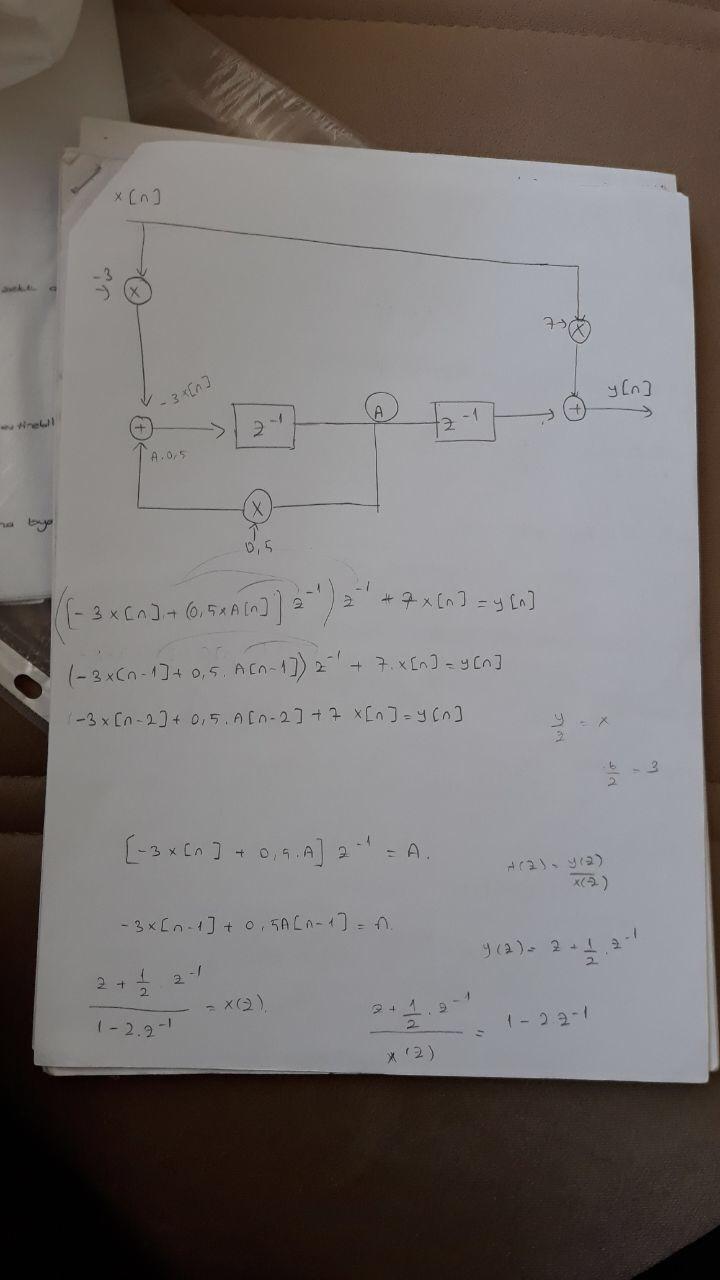 x[n]
-3
x
7
x
-3x[n]
y[n]
+
z⁻¹
A
z⁻¹
+
A.0,5
x
0,5
([-3x[n]+(0,5xA[n]] z⁻¹) z⁻¹ + 7x[n] = y[n]
(-3x[n-1]+ 0,5. A[n-1]) z⁻¹ + 7.x[n] = y[n]
-3x[n-2]+ 0,5.A[n-2]+7 x[n] = y[n]
y/2 = x
6/2 = 3
[-3x[n] + 0,5.A] z⁻¹ = A.
H(z) = y(z)/x(z)
-3x[n-1] + 0,5A[n-1] = A.
y(z) = 2 + 1/2 . z⁻¹
(2 + 1/2 . z⁻¹)/(1-2.z⁻¹) = x(z).
(2 + 1/2 . z⁻¹)/x(z) = 1-2z⁻¹